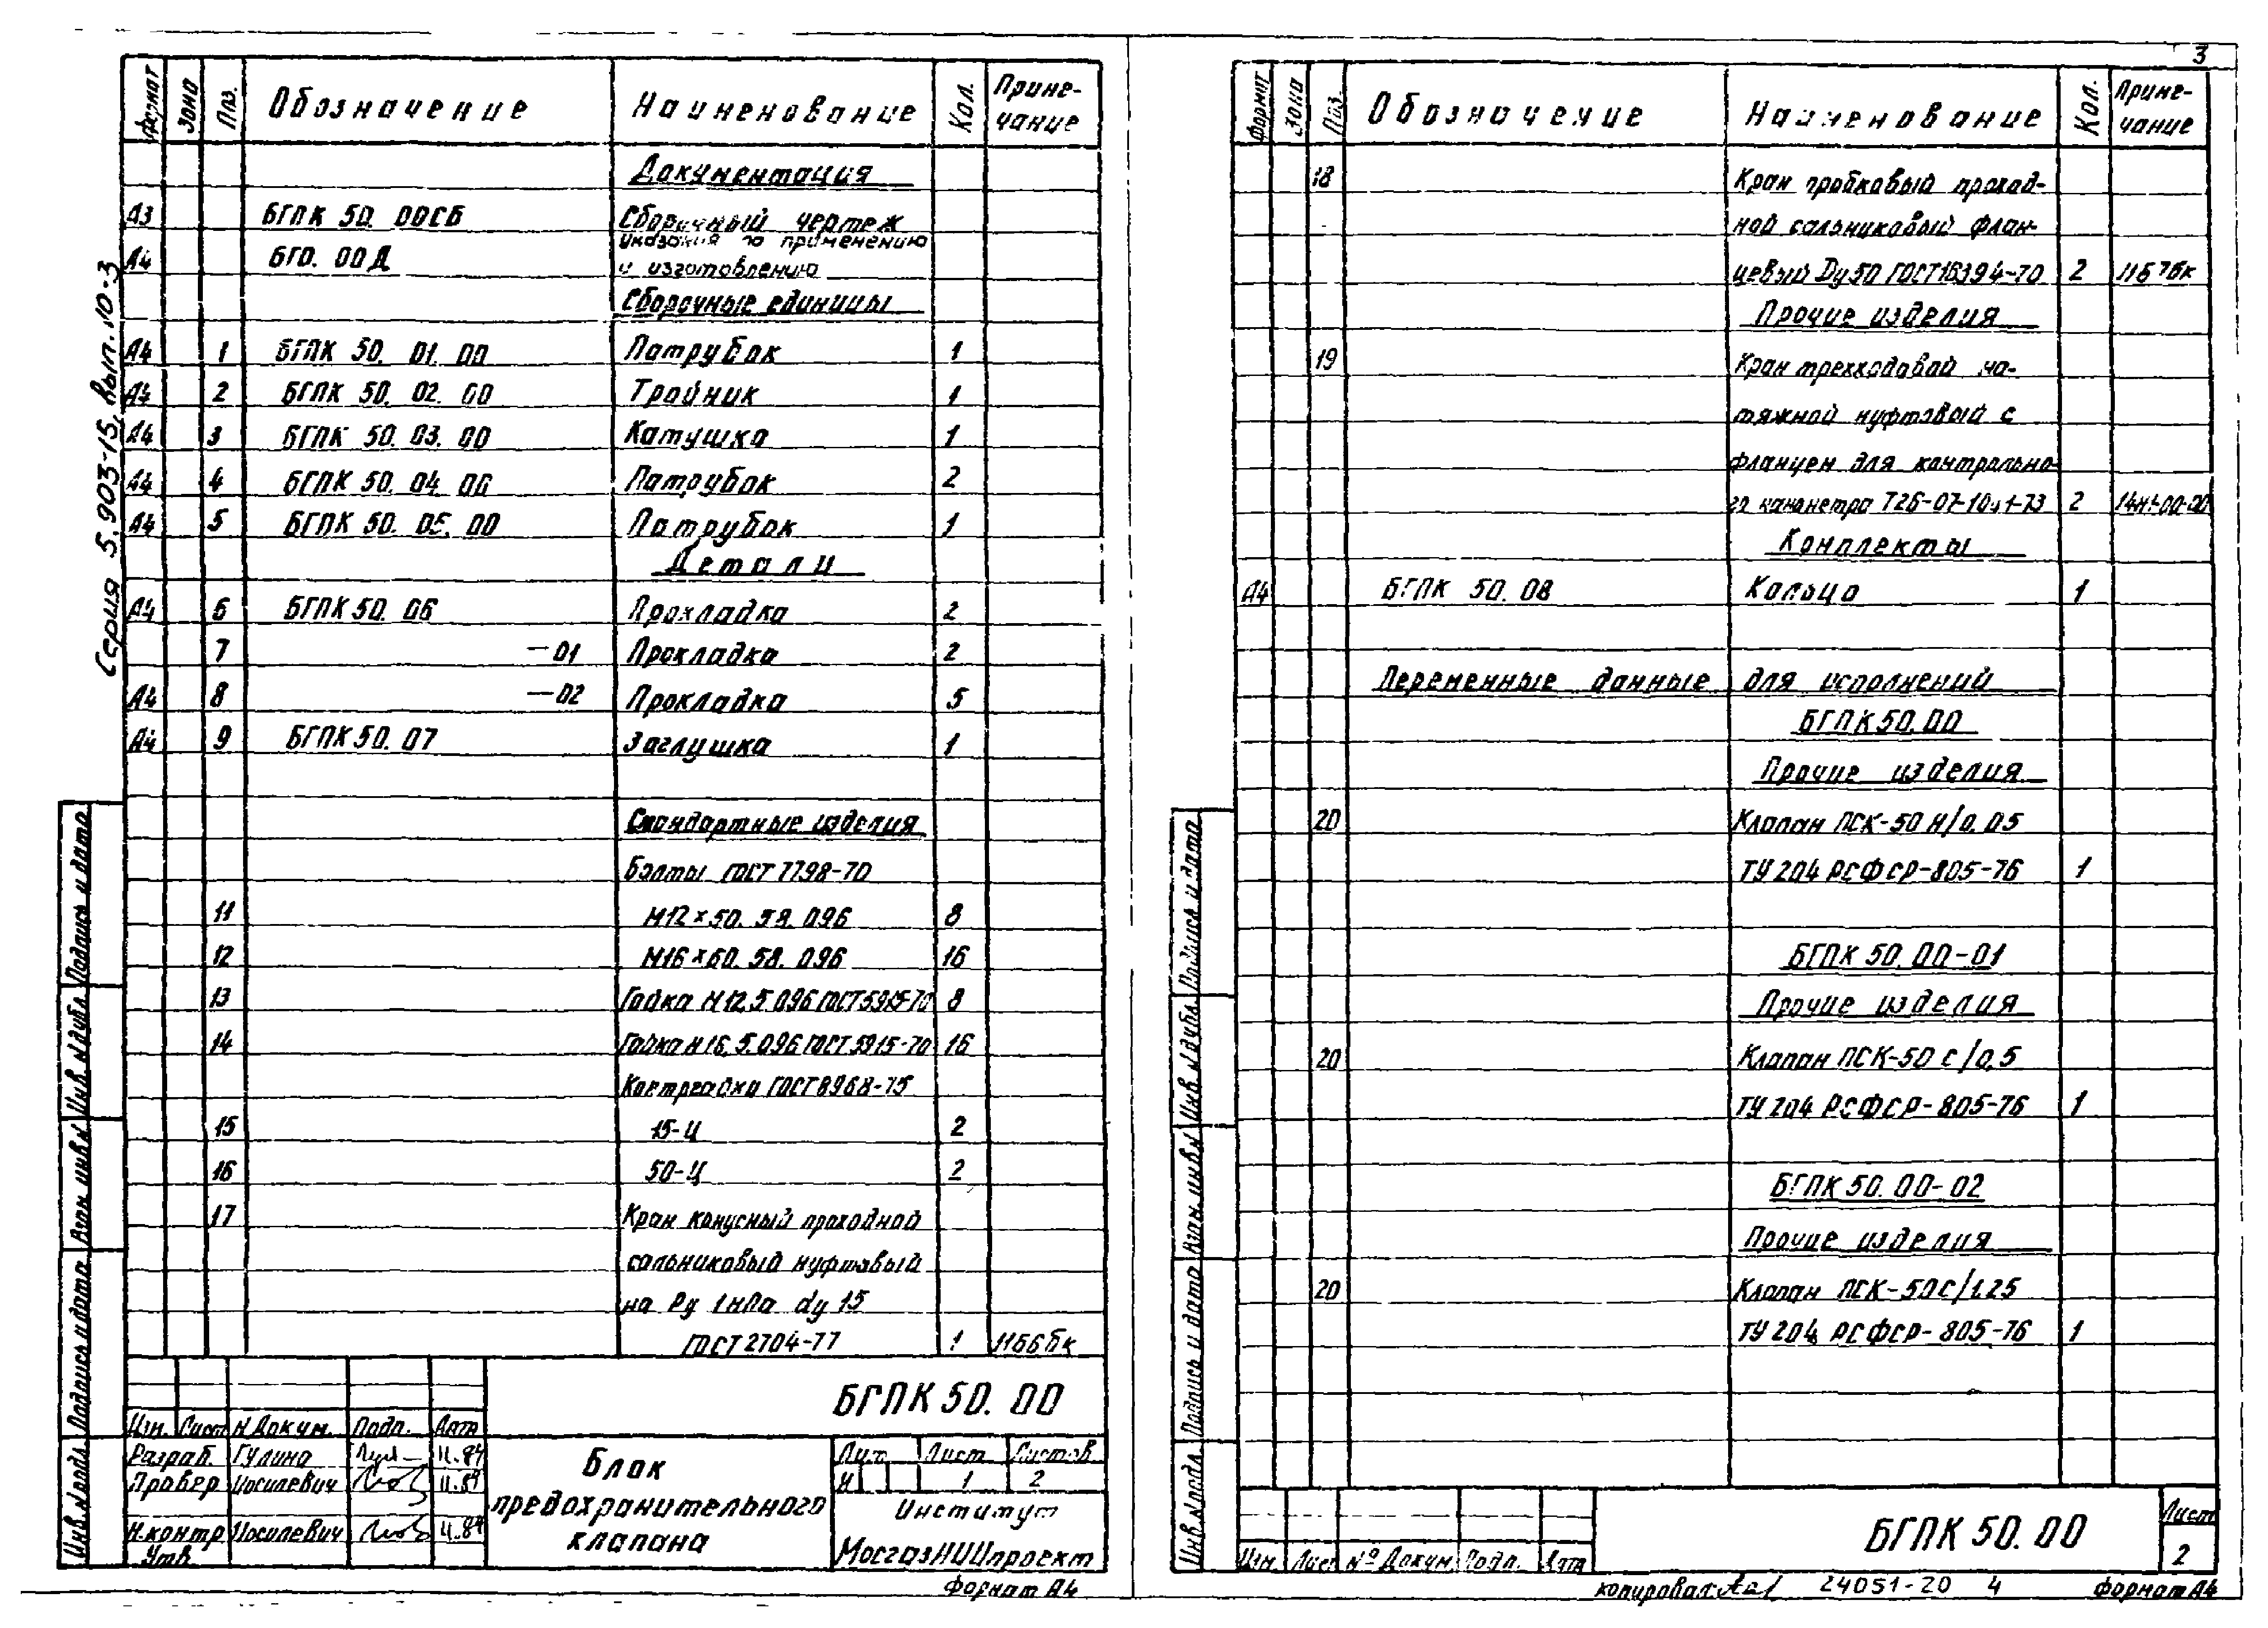 3
Серия 5.903-15, вып.10-3
Формат Зона Поз. Обозначение Наименование Кол. Приме-
чание
Документация
А3 БГПК 50. 00СБ Сборочный чертеж
А4 БГО. 00Д Указания по применению
и изготовлению
Сборочные единицы
А4 1 БГПК 50. 01. 00 Патрубок 1
А4 2 БГПК 50. 02. 00 Тройник 1
А4 3 БГПК 50. 03. 00 Катушка 1
А4 4 БГПК 50. 04. 00 Патрубок 2
А4 5 БГПК 50. 05. 00 Патрубок 1
Детали
А4 6 БГПК 50. 06 Прокладка 2
7 —01 Прокладка 2
А4 8 —02 Прокладка 5
А4 9 БГПК 50. 07 Заглушка 1
Стандартные изделия
Болты ГОСТ 7798-70
11 М12×50. 58. 096 8
12 М16×60. 58. 096 16
13 Гайка М12.5.096 ГОСТ 5915-70 8
14 Гайка М16.5.096 ГОСТ 5915-70 16
Контргайки ГОСТ 8968-75
15 15-Ц 2
16 50-Ц 2
17 Кран конусный проходной
сальниковый муфтовый
на Ру 1мПа dу 15
ГОСТ 2704-77 1 11Б6бк
БГПК 50. 00
Изм. Лист N Докум. Подп. Дата
Разраб. Гулина 11.84
Провер Иосилевич 11.84
Н.контр Иосилевич 11.84
Утв.
Блок
предохранительного
клапана
Лит Лист Листов
И 1 2
Институт
МосгазНИИпроект
Формат А4
Инв.N подл. Подпись и дата Взам.инв.N Инв.N дубл. Подпись и дата
Формат Зона Поз. Обозначение Наименование Кол. Приме-
чание
18 Кран пробковый проход-
ной сальниковый флан-
цевый Dу 50 ГОСТ 16394-70 2 11Б7бк
Прочие изделия
19 Кран трехходовой на-
тяжной муфтовый с
фланцем для контрольно-
го манометра Т26-07-1041-73 2
Комплекты
А4 БГПК 50. 08 Кольцо 1
Переменные данные для исполнений
БГПК 50. 00
Прочие изделия
20 Клапан ПСК-50 Н/0.05
ТУ 204 РСФСР-805-76 1
БГПК 50. 00-01
Прочие изделия
20 Клапан ПСК-50 С/0,5
ТУ 204 РСФСР-805-76 1
БГПК 50. 00-02
Прочие изделия
20 Клапан ПСК-50С/1.25
ТУ 204 РСФСР-805-76 1
Изм. Лист № Докум. Подп. Дата
БГПК 50. 00
Лист
2
Инв.N подл. Подпись и дата Взам.инв.N Инв.N дубл. Подпись и дата
копировал: 24051-20 4 Формат А4